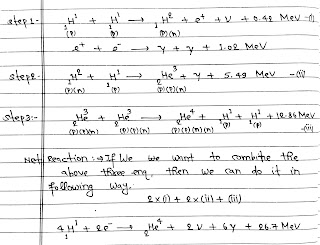 step 1- ₁H¹ + ₁H¹ → ₁H² + e⁺ + ν + 0.42 MeV -(i)
(p) (p) (p)(n)
e⁺ + e⁻ → γ + γ + 1.02 MeV
step 2- ₁H² + ₁H¹ → ₂He³ + γ + 5.49 MeV -(ii)
(p)(n) (p) (p)(p)(n)
step 3:- ₂He³ + ₂He³ → ₂He⁴ + ₁H¹ + ₁H¹ + 12.86 MeV
(p)(p)(n) (p)(p)(n) (p)(p)(n)(n) (p) (p) -(iii)
Net Reaction :⇒ If we we want to combine the
above three enq, then we can do it in
following way.
2×(i) + 2×(ii) + (iii)
4 ₁H¹ + 2e⁻ → ₂He⁴ + 2ν + 6γ + 26.7 MeV